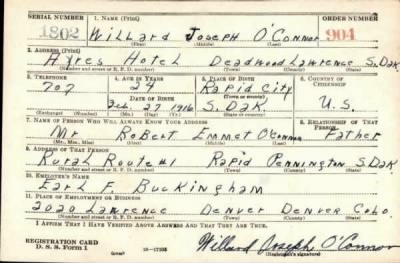 SERIAL NUMBER 1. NAME (Print) ORDER NUMBER
1802 Willard Joseph O'Connor 904
(First) (Middle) (Last)
2. ADDRESS (Print)
Ayres Hotel Deadwood Lawrence S.Dak.
(Number and street or R. F. D. number) (Town) (County) (State)
3. TELEPHONE 4. AGE IN YEARS 5. PLACE OF BIRTH 6. COUNTRY OF CITIZENSHIP
707 24 Rapid City
DATE OF BIRTH (Town or county)
Feb. 27 1916 S.Dak. U.S.
(Exchange) (Number) (Mo.) (Day) (Yr.) (State or country)
7. NAME OF PERSON WHO WILL ALWAYS KNOW YOUR ADDRESS 8. RELATIONSHIP OF THAT PERSON
Mr Robert Emmet O'Connor Father
(Mr., Mrs., Miss) (First) (Middle) (Last)
9. ADDRESS OF THAT PERSON
Rural Route #1 Rapid Pennington S.Dak
(Number and street or R. F. D. number) (Town) (County) (State)
10. EMPLOYER'S NAME
Earl F. Buckingham
11. PLACE OF EMPLOYMENT OR BUSINESS
2020 Lawrence Denver Denver Colo.
(Number and street or R. F. D. number) (Town) (County) (State)
I AFFIRM THAT I HAVE VERIFIED ABOVE ANSWERS AND THAT THEY ARE TRUE.
REGISTRATION CARD
D. S. S. Form 1 (over) 16—17105 Willard Joseph O'Connor
(Registrant's signature)